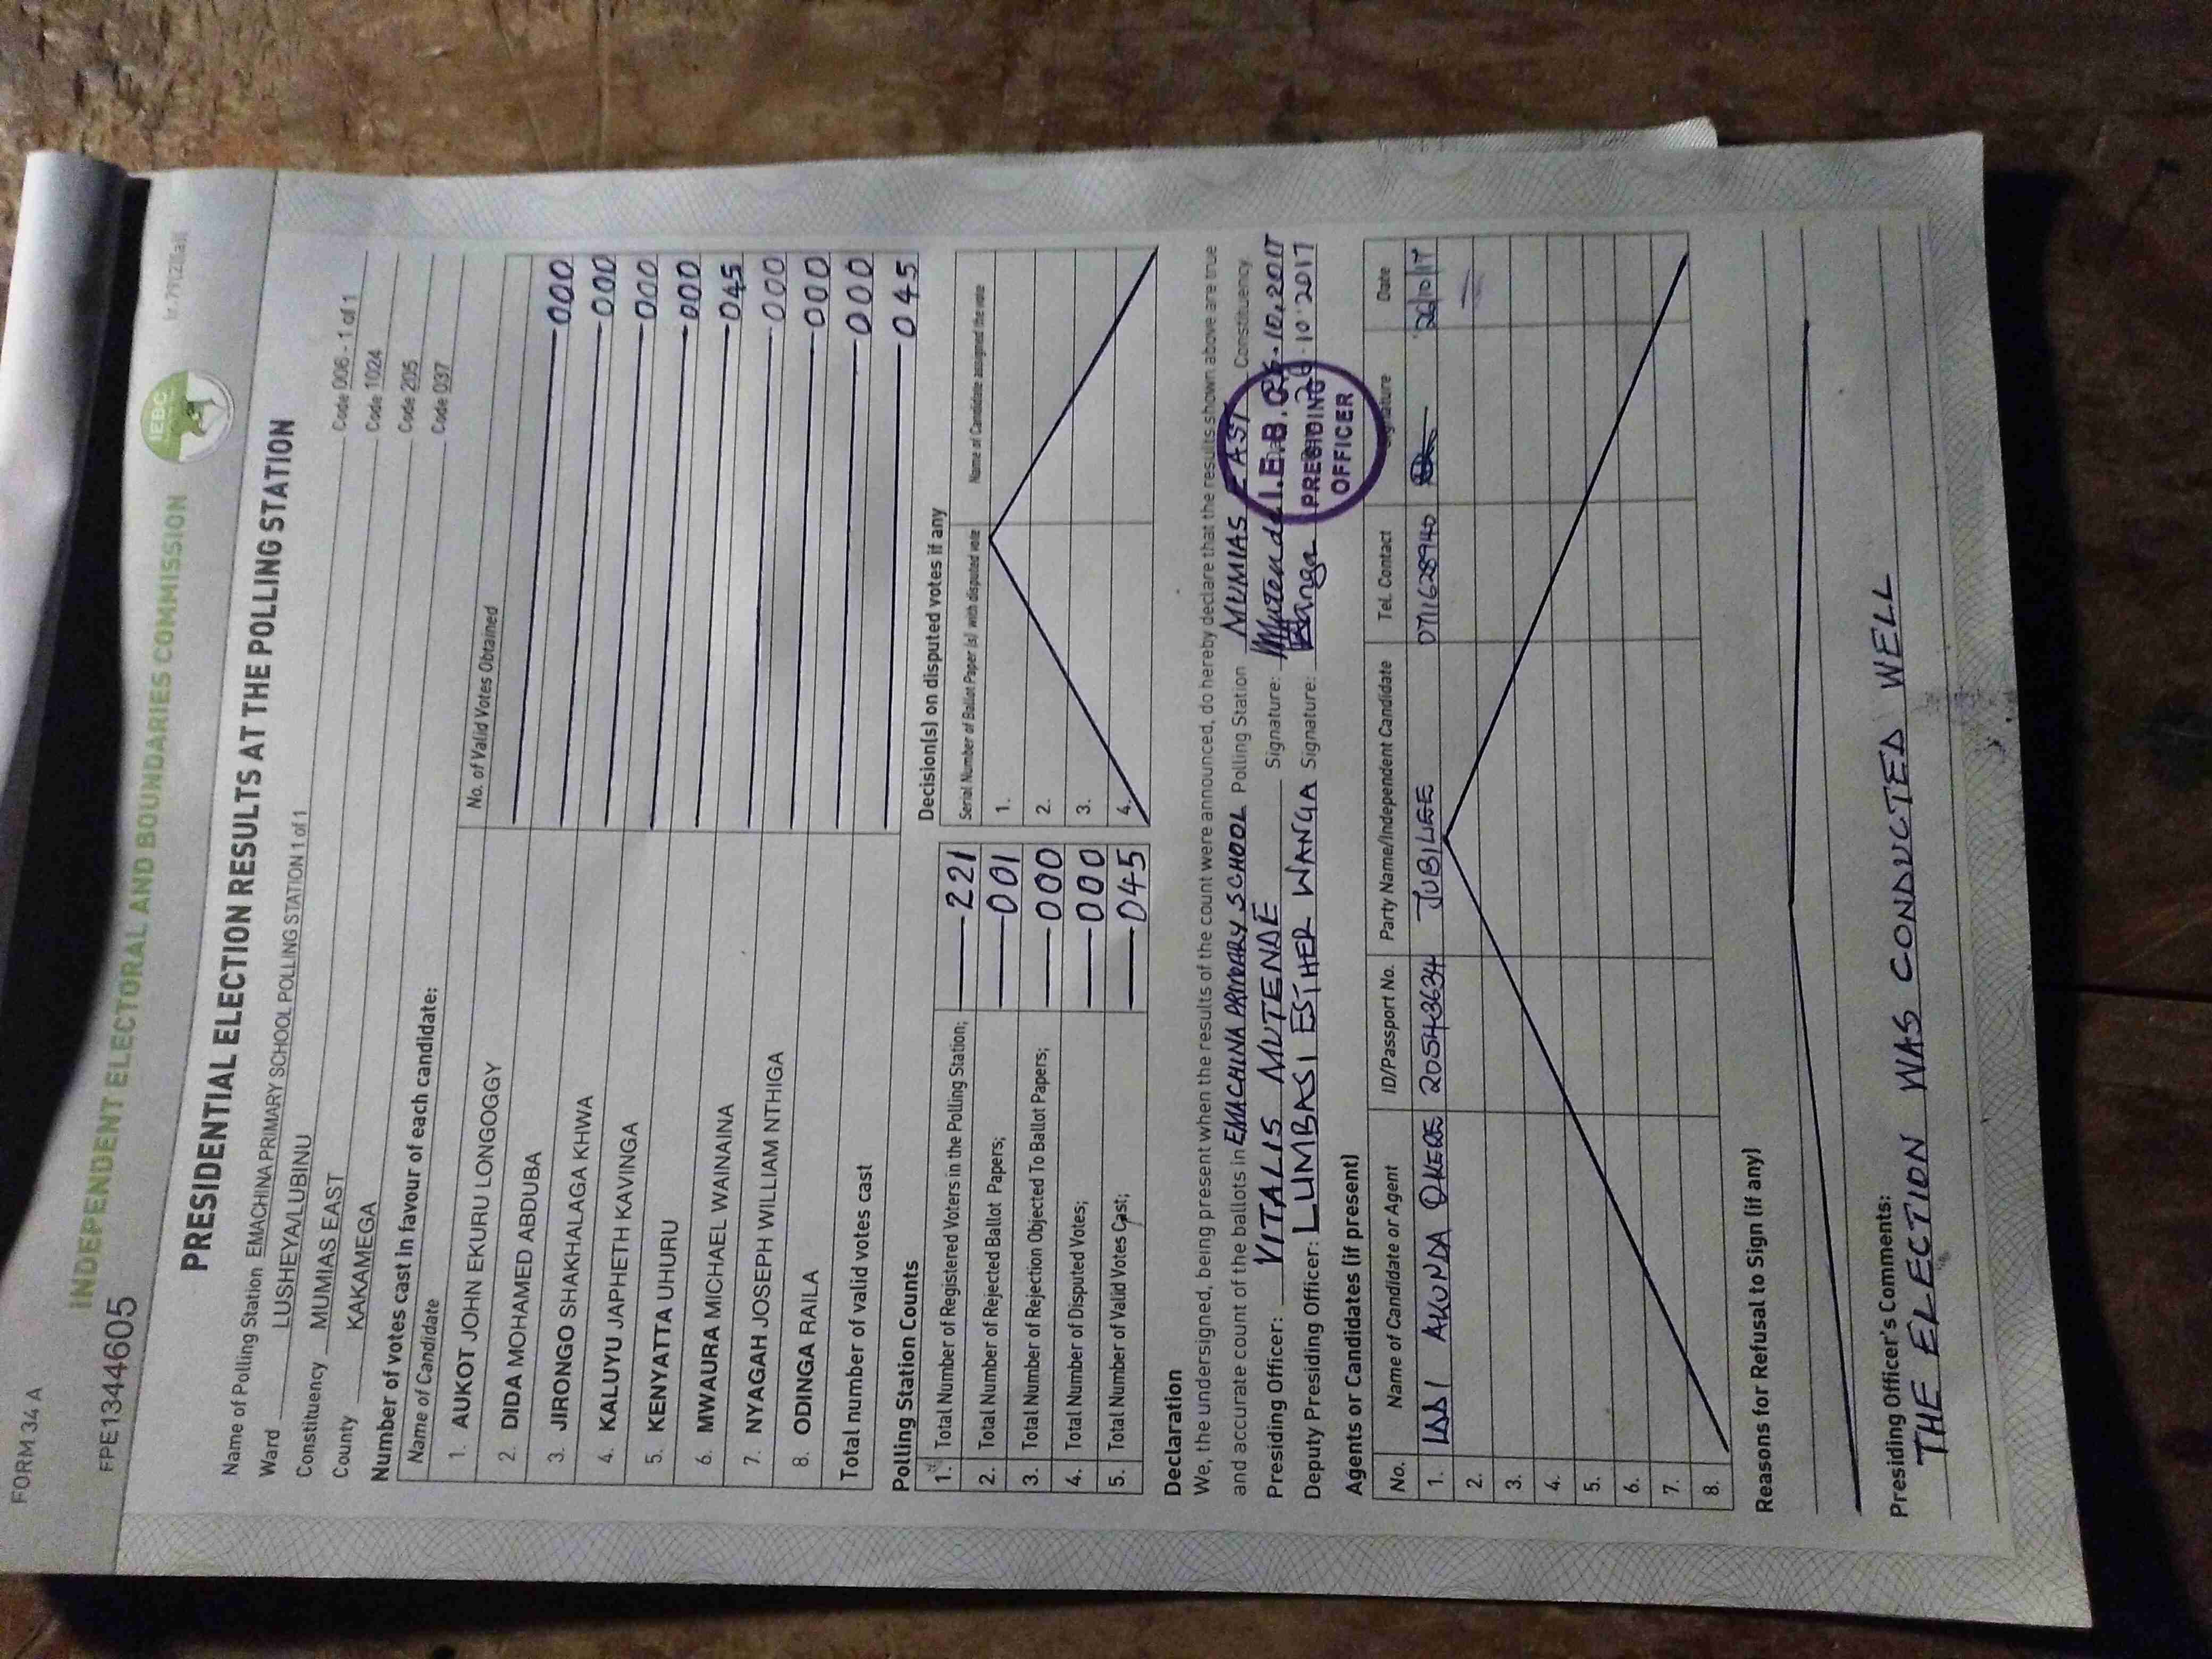 FORM 34 A
INDEPENDENT ELECTORAL AND BOUNDARIES COMMISSION
IEBC
FPE1344605
PRESIDENTIAL ELECTION RESULTS AT THE POLLING STATION
Name of Polling Station EMACHINA PRIMARY SCHOOL POLLING STATION 1 of 1 Code 006 - 1 of 1
Ward LUSHEYA/LUBINU Code 1024
Constituency MUMIAS EAST Code 205
County KAKAMEGA Code 037
Number of votes cast in favour of each candidate:
Name of Candidate No. of Valid Votes Obtained
1. AUKOT JOHN EKURU LONGOGGY 000
2. DIDA MOHAMED ABDUBA 000
3. JIRONGO SHAKHALAGA KHWA 000
4. KALUYU JAPHETH KAVINGA 000
5. KENYATTA UHURU 045
6. MWAURA MICHAEL WAINAINA 000
7. NYAGAH JOSEPH WILLIAM NTHIGA 000
8. ODINGA RAILA 000
Total number of valid votes cast 045
Polling Station Counts
1. Total Number of Registered Voters in the Polling Station; 221
2. Total Number of Rejected Ballot Papers; 001
3. Total Number of Rejection Objected To Ballot Papers; 000
4. Total Number of Disputed Votes; 000
5. Total Number of Valid Votes Cast; 045
Decision(s) on disputed votes if any
Serial Number of Ballot Paper (s) with disputed vote Name of Candidate assigned the vote
1.
2.
3.
4.
Declaration
We, the undersigned, being present when the results of the count were announced, do hereby declare that the results shown above are true
and accurate count of the ballots in EMACHINA PRIMARY SCHOOL Polling Station MUMIAS EAST Constituency
Presiding Officer: VITALIS MUTENDE Signature: Mutende 26.10.2017
Deputy Presiding Officer: LUMBASI ESTHER WANGA Signature: Wanga 26.10.2017
I.E.B.C.
PRESIDING
OFFICER
Agents or Candidates (if present)
No. Name of Candidate or Agent ID/Passport No. Party Name/Independent Candidate Tel. Contact Signature Date
1. IDDI AKUNDA OKEDE 20543634 JUBILEE 0711628940 26/10/17
2.
3.
4.
5.
6.
7.
8.
Reasons for Refusal to Sign (if any)
Presiding Officer's Comments:
THE ELECTION WAS CONDUCTED WELL